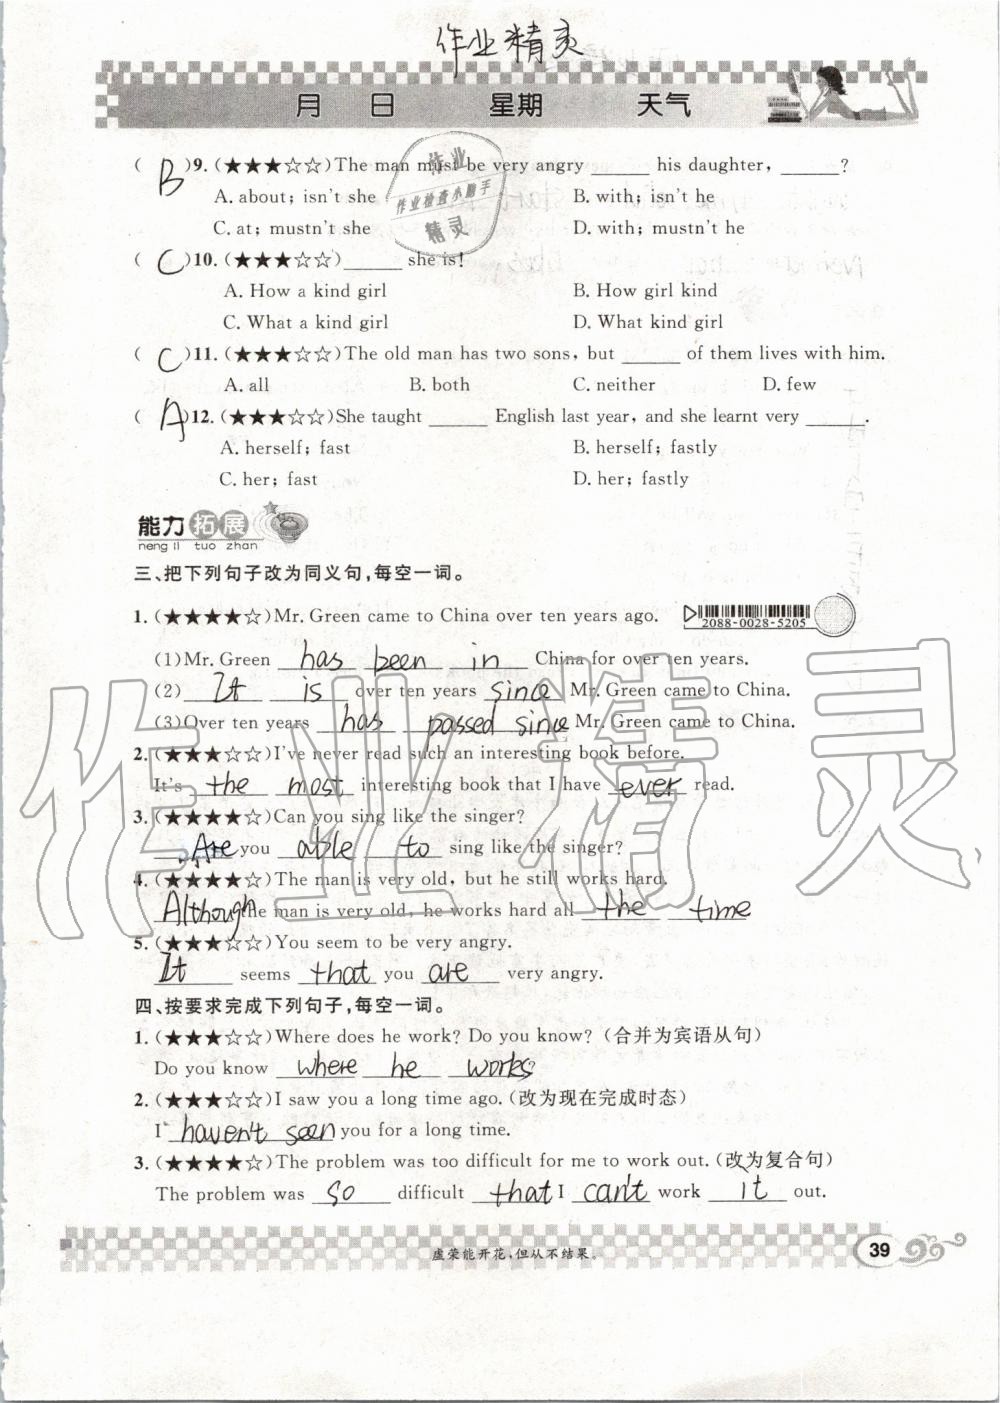 作业精灵
月 日 星期 天气
( B )9. (★★★☆☆)The man must be very angry ______ his daughter, ______?
A. about; isn't she B. with; isn't he
C. at; mustn't she D. with; mustn't he
作业
作业检查小助手
精灵
( C )10. (★★★☆☆)______ she is!
A. How a kind girl B. How girl kind
C. What a kind girl D. What kind girl
( C )11. (★★★☆☆)The old man has two sons, but ______ of them lives with him.
A. all B. both C. neither D. few
( A )12. (★★★☆☆)She taught ______ English last year, and she learnt very ______.
A. herself; fast B. herself; fastly
C. her; fast D. her; fastly
能力拓展
neng li tuo zhan
三、把下列句子改为同义句,每空一词。
1. (★★★★☆)Mr. Green came to China over ten years ago.
2088-0028-5205
(1)Mr. Green has been in China for over ten years.
(2) It is over ten years since Mr. Green came to China.
(3)Over ten years has passed since Mr. Green came to China.
2. (★★★☆☆)I've never read such an interesting book before.
It's the most interesting book that I have ever read.
3. (★★★★☆)Can you sing like the singer?
Are you able to sing like the singer?
4. (★★★★☆)The man is very old, but he still works hard.
Although the man is very old, he works hard all the time
5. (★★★☆☆)You seem to be very angry.
It seems that you are very angry.
四、按要求完成下列句子,每空一词。
1. (★★★☆☆)Where does he work? Do you know?(合并为宾语从句)
Do you know where he works?
2. (★★★☆☆)I saw you a long time ago.(改为现在完成时态)
I haven't seen you for a long time.
3. (★★★★☆)The problem was too difficult for me to work out.(改为复合句)
The problem was so difficult that I can't work it out.
虚荣能开花,但从不结果。
39
作业精灵